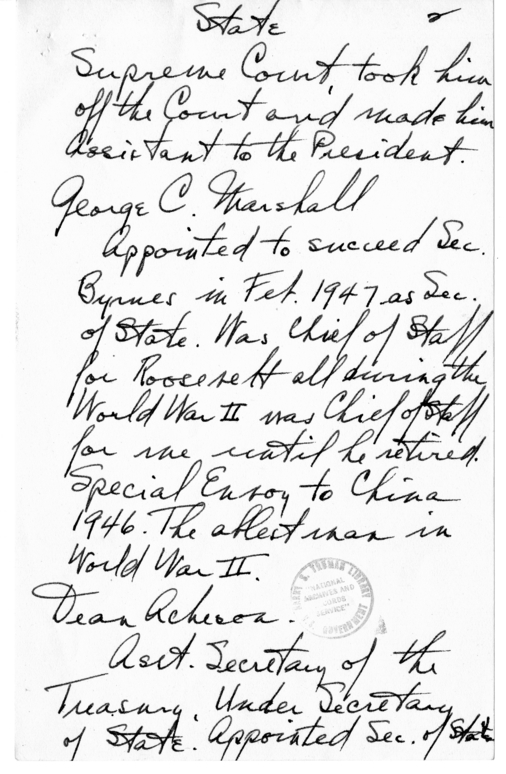 State 2
Supreme Court, took him
off the Court and made him
Assistant to the President.
George C. Marshall
Appointed to succeed Sec.
Byrnes in Feb. 1947 as Sec.
of State. Was Chief of Staff
for Roosevelt all during the
World War II was Chief of Staff
for me until he retired.
Special Envoy to China
1946. The ablest man in
World War II.
HARRY S. TRUMAN LIBRARY
"NATIONAL
ARCHIVES AND
SERVICE"
GOVERNMENT
Dean Acheson.
Asst. Secretary of the
Treasury. Under Secretary
of State. Appointed Sec. of State